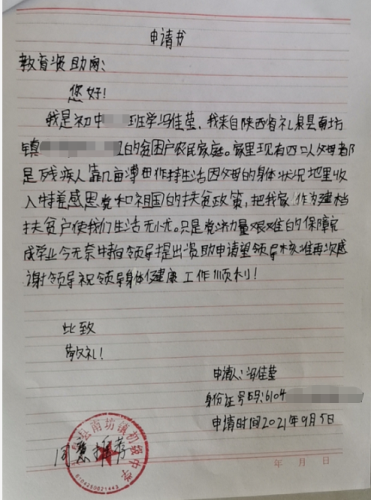 申请书
教育资助商:
您好!
我是初中 班学冯佳莹，我来自陕西省礼泉县南坊
镇 的贫困户农民家庭。家里现有四口人父母都
是残疾人靠几亩薄田作持生活因父母的身体状况地里收
入特差感恩党和祖国的扶贫政策，把我家作为建档
扶贫户使我们生活无忧。只是党 力量艰难的保障完
成学业今无奈特向领导提出资助申请望领导核准再次感
谢领导祝领导身体健康工作顺利!
此致
敬礼!
申请人:冯佳莹
身份证号码:6104
申请时间2021年9月5日
同意 荐
县南坊镇初级中学
年 月 日